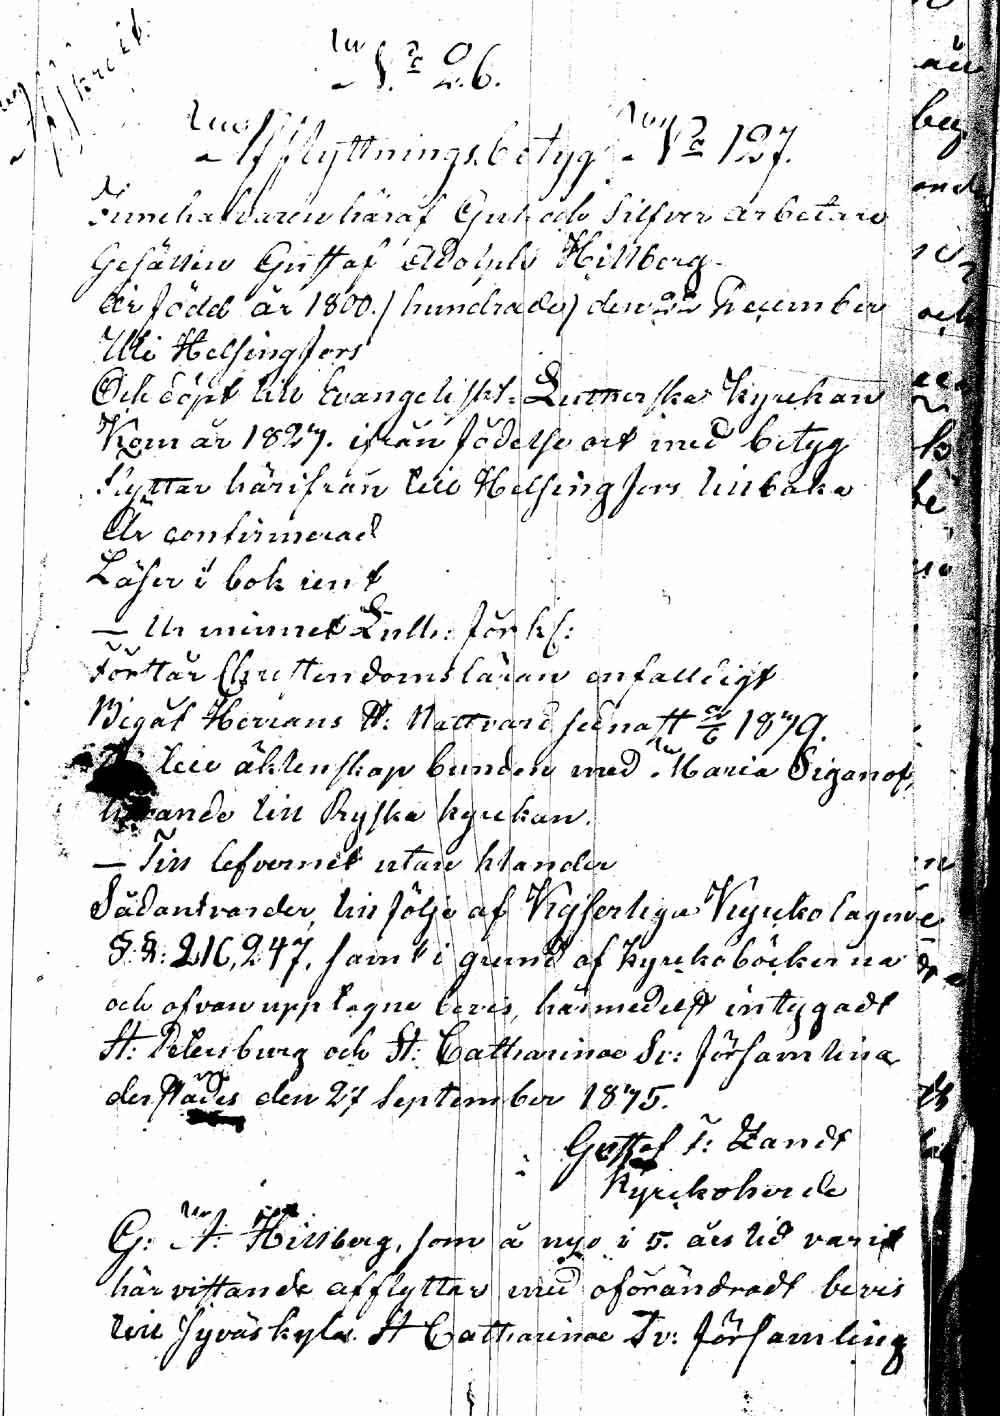 Afskrift.
No 26.
Afflyttningsbetyg No 127.
Innehafvaren häraf Guld och Silfver arbetare
Gesällen Gustaf Adolph Hillberg
är född år 1800./hundrade/ den 22 December
Uti Helsingfors
Och döpt till Evangeliskt-Lutherska Kyrckan
Kom år 1827. ifrån födelse ort med betyg
Flyttar härifrån till Helsingfors tillbaka
Är confirmerad
Läser i bok rent
— Ur minnet Luth: förkl:
Förstår Christendomsläran enfalldigt
Begåt Herrans H: Nattvard senast
till äktenskap bunden med Maria Siganof,
hörande till Ryska kyrckan.
— Till lefvernet utan klander
Sådant varder, till följe af Kejserliga Kyrcko lagens
§.§: 216, 247, samt i grund af Kyrckoböckerna
och ofvan upptagne bevis, härmedelst intygadt
St: Petersburg och St: Catharinae Sv: församling
derstädes den 27 September 1875.
Gustaf F: Zandt
Kyrckoherde
G: A: Hillberg, som å nyo i 5. års tid varit
här vistande afflyttar med oförändradt bevis
till Jyväskyla. St Catharinae Sv: församling